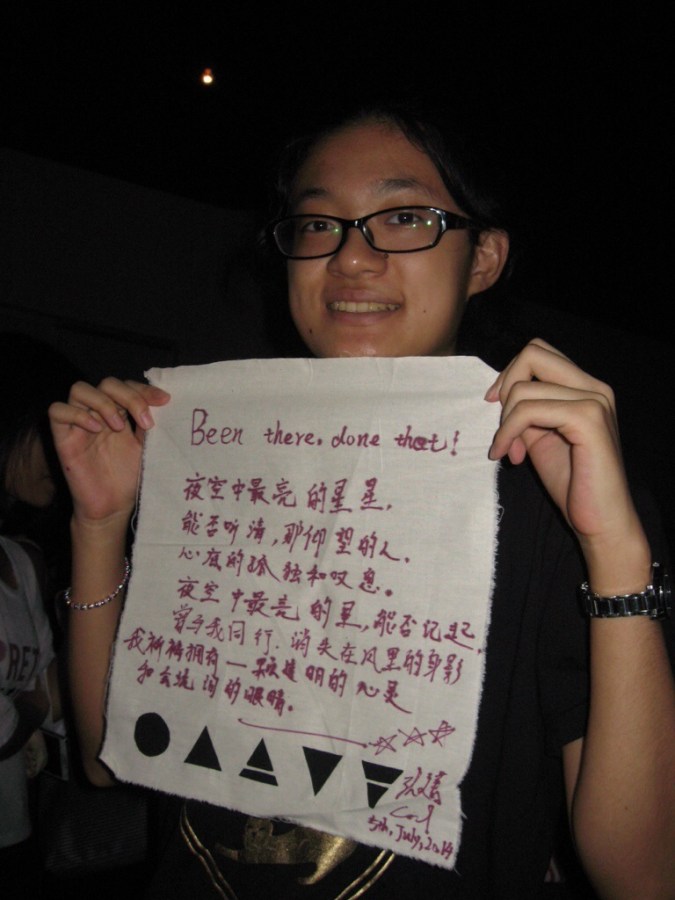 Been there, done that!
夜空中最亮的星星,
能否听清,那仰望的人.
心底的孤独和叹息.
夜空中最亮的星,能否记起
曾与我同行.消失在风里的身影
我祈祷拥有一颗透明的心灵
和会流泪的眼睛.
5th, July, 2014